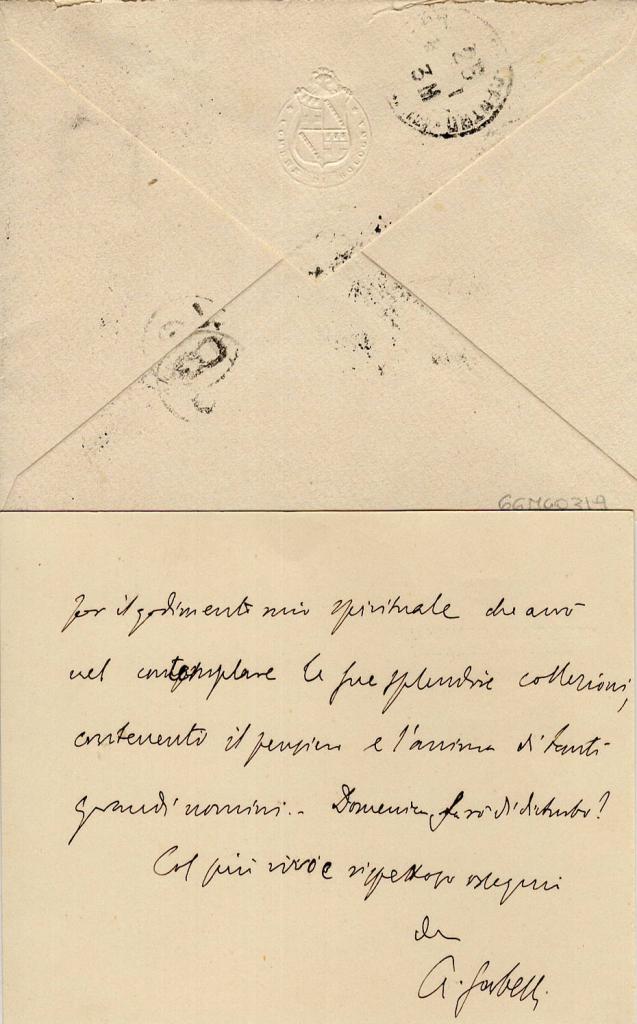 25 1
3M
GGMC0319
per il godimento mio spirituale che avrò
nel contemplare le sue splendide collezioni,
contenenti il pensiero e l'anima di tanti
grandi uomini.. Domenica, sarò di disturbo?
Col più vivo e rispettoso ossequi
A. Garbelli.